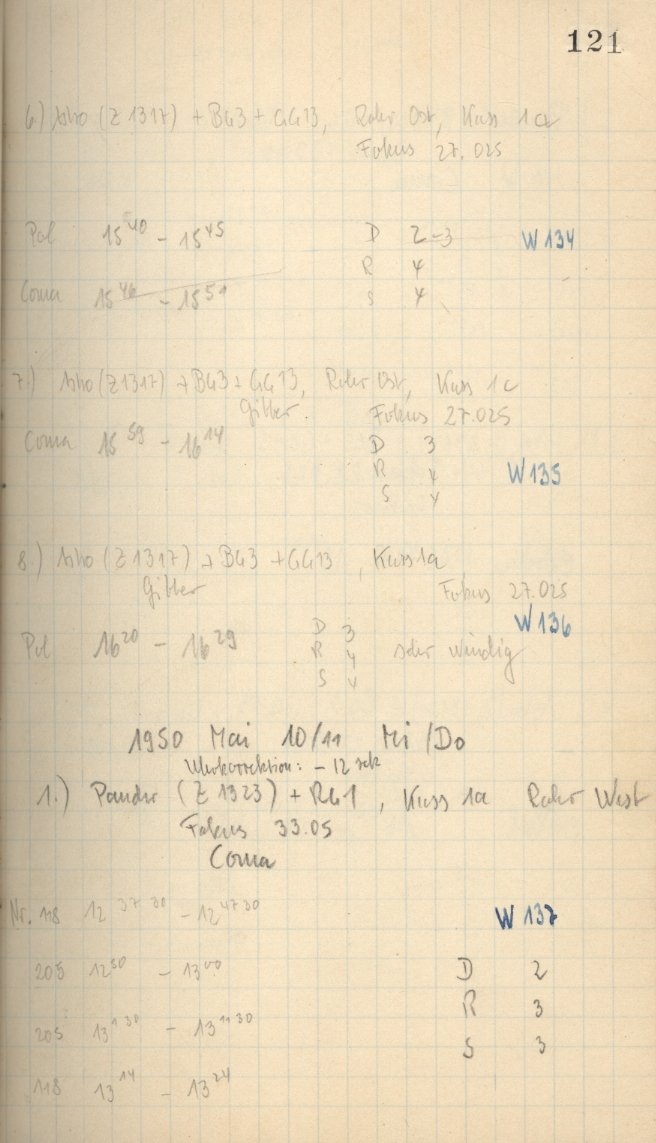 121
6) Astro (Z 1317) + BG3 + GG13, Rohr Ost, Kass 1a
Fokus 27.025
Pol 15 40 - 15 45 D 2-3 W 134
R 4
Coma 15 46 - 15 51 S 4
7.) Astro (Z1317) + BG3 + GG13, Rohr Ost, Kass 1c
Gitter. Fokus 27.025
Coma 15 59 - 16 14 D 3
R 4 W 135
S 4
8.) Astro (Z 1317) + BG3 + GG13, Kass 1a
Gitter Fokus 27.025
W 136
Pol 16 20 - 16 29 D 3
R 4 sehr windig
S 4
1950 Mai 10/11 Mi/Do
Uhrkorrektion: - 12 sek
1.) Panchr (Z 1323) + RG1, Kass 1a Rohr West
Fokus 33.05
Coma
Nr. 118 12 37 30 - 12 47 30 W 137
205 12 50 - 13 00 D 2
R 3
205 13 1 30 - 13 11 30 S 3
118 13 14 - 13 24